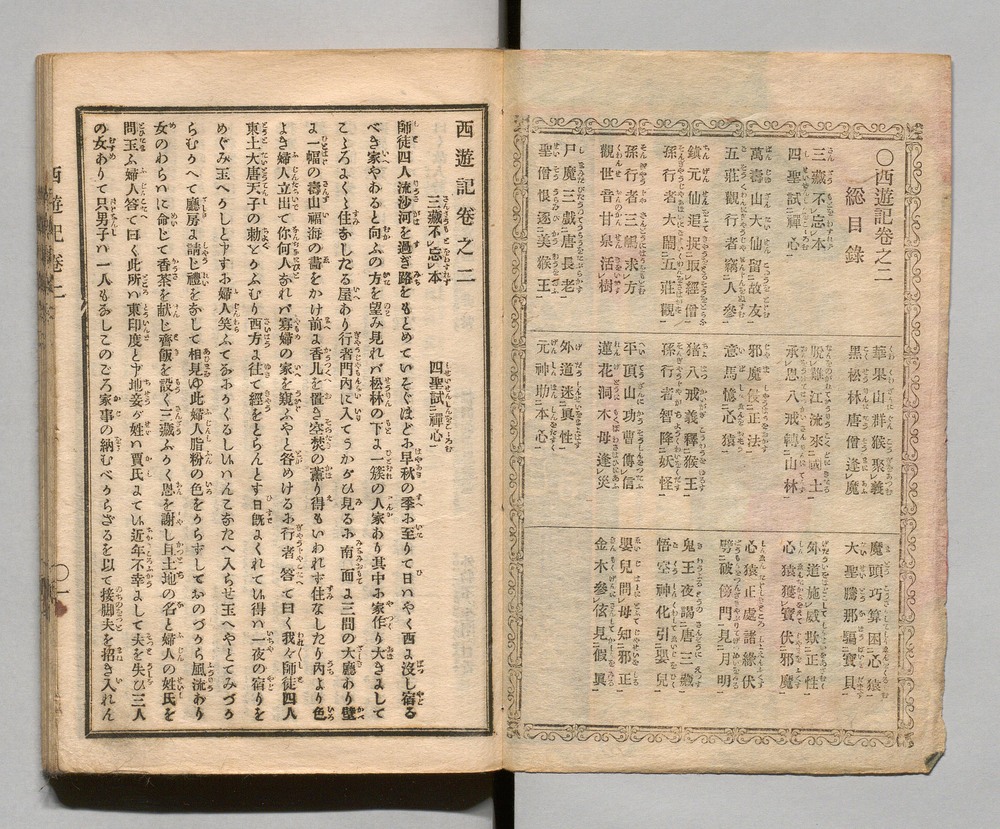 〇西遊記卷之二
総目錄
三藏不忘本
四聖試禪心
萬壽山大仙留故友
五莊觀行者竊人參
鎭元仙追捉取經僧
孫行者大鬧五莊觀
孫行者三嶋求方
觀世音甘泉活樹
尸魔三戲唐長老
聖僧恨逐美猴王
華果山群猴聚義
黑松林唐僧逢魔
脫難江流來國土
承恩八戒轉山林
邪魔侵正法
意馬憶心猿
猪八戒義釋猴王
孫行者智降妖怪
平頂山功曹傳信
蓮花洞木母逢災
外道迷眞性
元神助本心
魔頭巧算困心猿
大聖騰那騙寶貝
外道施威欺正性
心猿獲寶伏邪魔
心猿正處諸緣伏
劈破傍門見月明
鬼王夜謁唐三藏
悟空神化引嬰兒
嬰兒問母知邪正
金木參玄見假眞
西遊記卷之二
三藏不忘本　四聖試禪心
師徒四人流沙河を過ぎ路をもとめていそぐほどに早秋の季に至りて日はやく西に沒し宿る
べき家やあると向ふの方を望み見れバ松林の下に一簇の人家あり其中に家作り大きまして
こゝろよく住なしたる屋あり行者門內に入てうかゞひ見るに南面に三間の大廳あり壁
に一幅の壽山福海の畫をかけ前に香几を置き空焚の薰り得もいわれず住なしたり內より色
よき婦人立出で你何人なれバ寡婦の家を窺ふやと咎めけるに行者答て曰く我々師徒四人
東土大唐天子の勅どうふむり西方に往て經をとらんとす日旣にくれてハ得ハ一夜の宿りを
めぐみ玉へかしと申すに婦人笑ふてなにかくるしいはんこなたへ入らせ玉へやとてみづか
らむかへて廳房に請し禮をなして相見ゆ此婦人脂粉の色をからずしておのづから風流あり
女のわらハに命じて香茶を献じ齋飯を設く三藏ふかく恩を謝し且土地の名と婦人の姓氏を
問玉ふ婦人答て曰く此所ハ東印度と申地妾が姓ハ賈氏まてハ近年不幸まして夫を失ひ三人
の女ありて只男子ハ一人もなしこのごろ家事の納むべからざるを以て接脚夫を招き入れん
西遊記卷二
〇一